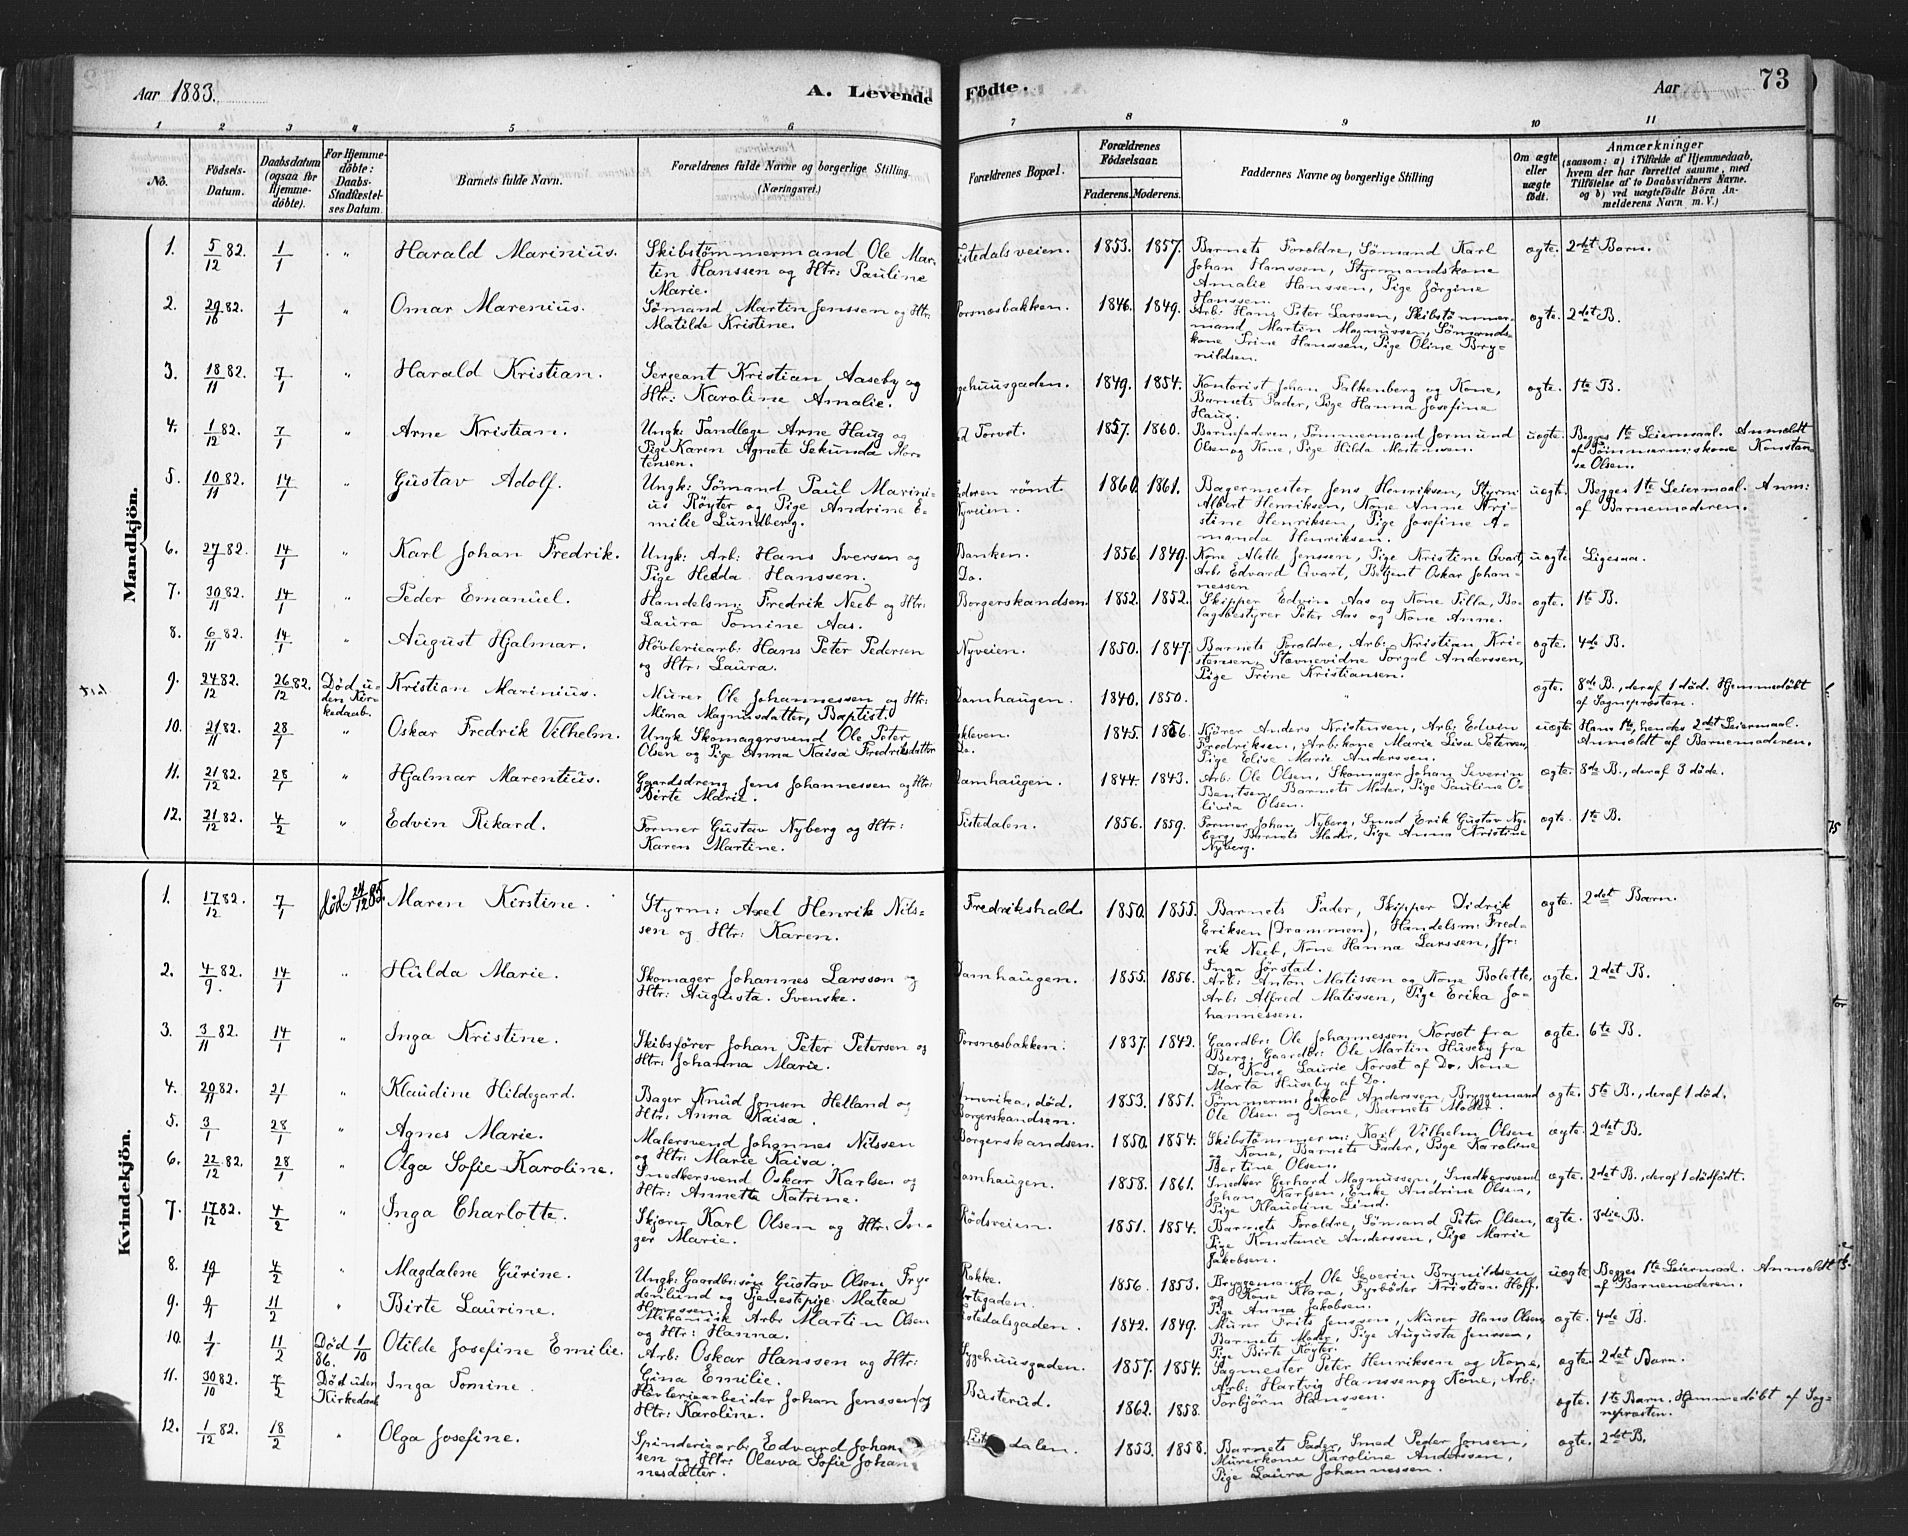 Aar 1883.
A. Levende Födte.
Aar
73
1 2 3 4 5 6 7 8 9 10 11
No.
Födsels-Datum.
Daabsdatum (ogsaa for Hjemmedöbte).
For Hjemmedöbte: Daabs-Stadfæstelses Datum.
Barnets fulde Navn.
Forældrenes fulde Navne og borgerlige Stilling. (Næringsvei.)
Forældrenes Bopæl.
Forældrenes Födselsaar.
Faderens. Moderens.
Faddernes Navne og borgerlige Stilling
Om ægte eller uægte födt.
Anmærkninger
(saasom: a) i Tilfælde af Hjemmedaab, hvem der har forrettet samme, med Tilföielse af to Daabsvidners Navne, og b) ved uægtefödte Börn Anmelderens Navn m. V.)
Mandkjön.
1. 5/12 82. 1/1 " Harald Marinius. Skibstömmermand Ole Martin Hanssen og Htr: Pauline Marie. Tistedalsveien. 1853. 1857. Barnets Foroldre, Sömand Karl Johan Hanssen, Styrmandskone Amalie Hanssen, Pige Jörgine Hanssen. ogte. 2det Barn.
2. 29/10 82. 1/1 " Omar Marenius. Sömand Martin Jenssen og Htr: Matilde Kristine. Porsnosbakken. 1846. 1849. Arb: Hans Peter Larssen, Skibstömmermand Martin Magnussen, Sömandskone Trine Hanssen, Pige Oline Brynildsen. ogte. 2det B.
3. 18/11 82. 7/1 " Harald Kristian. Sergeant Kristian Aaseby og Htr: Karoline Amalie. Sygehuusgaden. 1849. 1854. Kontorist Johan Falkenberg og Kone, Barnets Fader, Pige Hanna Josefine Haug. ogte. 1te B.
4. 1/12 82. 7/1 " Arne Kristian. Ungk: Tandloge Arne Haug og Pige Karen Agnete Sekunda Mortensen. Ved Torvet. 1857. 1860. Barnefaderen, Tömmermand Jermund Olsen og Kone, Pige Hilda Mortensen. uogte. Begges 1te Leiermaal. Anmeldt af Tömmermskone Konstanse Olsen.
5. 10/11 82. 14/1 " Gustav Adolf. Ungk: Sömand Paul Marinius Röyter og Pige Andrine Emilie Lundberg. Faderen römt. Nyveien. 1860. 1861. Bagermester Jens Henriksen, Styrm: Albert Henriksen, Kone Anne Kristine Henriksen, Pige Josefine Amanda Henriksen. uogte. Begges 1te Leiermaal. Anm: af Barnemoderen.
6. 27/9 82. 14/1 " Karl Johan Fredrik. Ungk: Arb: Hans Iversen og Pige Hedda Hanssen. Banken. Do. 1856. 1849. Kone Alette Jenssen, Pige Kristine Qvart, Arb: Edvard Qvart, Betjent Oskar Johannessen. uogte. Ligesaa.
7. 30/11 82. 14/1 " Peder Emanuel. Handelsm: Fredrik Neeb og Htr: Laura Tomine Aas. Borgerskandsen. 1852. 1852. Skipper Edvin Aas og Kone Tilla, Bolagsbestyrer Peter Aas og Kone Anne. ogte. 1te B.
8. 6/11 82. 14/1 " August Hjalmar. Hövleriearb: Hans Peter Pedersen og Htr: Laura. Nyveien. 1850. 1847. Barnets Foroldre, Arb: Kristian Kristensen, Stævnevidne Torgal Anderssen, Pige Trine Kristiansen. ogte. 4de B.
9. 24/12 82. 26/12 82. Död uden Kirkedaab. Kristian Marinius. Murer Ole Johannessen og Htr: Mina Magnusdatter, Baptist. Damhaugen. 1840. 1850. " ogte. 8de B., deraf 1 död. Hjemmedöbt af Sogneprosten.
10. 21/11 82. 28/1 " Oskar Fredrik Vilhelm. Ungk Skomagersvend Ole Peter Olsen og Pige Anna Kaisa Fredriksdatter. Do. 1845. 1856. Kjörer Anders Kristensen, Arb: Edvin Fredriksen, Arb:kone Marie Lisa Petersen, Pige Elise Marie Anderssen. uogte. Hans 1te, hendes 2det Leiermaal. Anmeldt af Barnemoderen.
11. 21/12 82. 28/1 " Hjalmar Marentius. Gaardsdreng Jens Johannessen og Htr: Birte Marie. Damhaugen. 1844. 1843. Arb: Ole Olsen, Skomager Johan Severin Bentsen, Barnets Moder, Pige Pauline Olivia Olsen. ogte. 8de B., deraf 3 döde.
12. 21/12 82. 4/2 " Edvin Rikard. Former Gustav Nyberg og Htr: Karen Martine. Tistedalen. 1856. 1859. Former Johan Nyberg, Smed Erik Gustav Nyberg, Barnets Moder, Pige Anna Kristine Nyberg. ogte. 1te B.
Kvindekjön.
1. 17/12 82. 7/1 död 24/12 85. Maren Kirstine. Styrm: Axel Henrik Nilssen og Htr: Karen. Fredrikshald. 1850. 1855. Barnets Fader, Skipper Didrik Eriksen (Drammen), Handelsm: Fredrik Neeb, Kone Hanna Larssen, ffr: Inga Jörstad. ogte. 2det Barn.
2. 4/9 82. 14/1 " Hulda Marie. Skomager Johannes Larsson og Htr: Augusta. Svenske. Damhaugen. 1855. 1856. Arb: Anton Matissen og Kone Bolette, Arb: Alfred Matissen, Pige Erika Johannessen. ogte. 2det B.
3. 3/11 82. 14/1 " Inga Kristine. Skibsförer Johan Peter Petersen og Htr: Johanna Marie. Porsnosbakken. 1837. 1842. Gaardbr: Ole Johannessen Korsæt fra Berg, Gaardbr: Ole Martin Huseby fra Do, Kone Laurie Korsæt af Do, Kone Marta Huseby af Do. ogte. 6te B.
4. 20/11 82. 21/1 " Klaudine Hildegard. Bager Knud Jonsen Helland og Htr: Anna Kaisa. Amerika, död. Borgerskandsen. 1853. 1851. Tömmerm: Jakob Anderssen, Bryggemand Ole Olsen og Kone, Barnets Moder. ogte. 5te B., deraf 1 död.
5. 3/1 28/1 " Agnes Marie. Malersvend Johannes Nilssen og Htr: Marie Kaisa. Borgerskandsen. 1850. 1854. Skibstömmerm: Karl Vilhelm Olsen og Kone, Barnets Fader, Pige Karoline Bertine Olsen. ogte. 2det B.
6. 22/12 82. 28/1 " Olga Sofie Karoline. Snedkersvend Oskar Karlsen og Htr: Annette Katrine. Damhaugen. 1858. 1861. Snedker Gerhard Magnussen, Snedkersvend Johan Karlsen, Enke Andrine Olsen, Pige Klaudine Lind. ogte. 2det B., deraf 1 dödfödt.
7. 17/12 82. 4/2 Inga Charlotte. Skjorer Karl Olsen og Htr: Inger Marie. Rödsveien. 1851. 1854. Barnets Foroldre, Sömand Peter Olsen, Pige Konstanse Anderssen, Pige Marie Jakobsen. ægte. 3die B.
8. 19/1 4/2 " Magdalene Gurine. Ungk: Gaardbr:sön Gustav Olsen Frydenlund og Tjenestepige Matea Hanssen. Rokke. 1856. 1853. Bryggemand Ole Severin Brynildsen og Kone Klara, Fyrböder Kristian Hoff, Pige Anna Jakobsen. uogte. Begges 1te Leiermaal. Anmeldt af Barnemoderen.
9. 9/1 11/2 " Birte Laurine. Mekanisk Arb: Martin Olsen og Htr: Hanna. Tistedalsgaden. 1842. 1849. Murer Frits Jenssen, Murer Hans Olsen, Barnets Moder, Pige Augusta Jenssen, Pige Birte Röyter. ogte. 4de B.
10. 1/1 11/2 Död 1/10 86. Otilde Josefine Emilie. Arb: Oskar Hanssen og Htr: Gina Emilie. Sygehuusgaden. 1857. 1854. Sagmester Peter Henriksen og Kone, Arb: Hartvig Hanssen og Kone, Arb: Torbjörn Hanssen. ogte. 2det Barn.
11. 30/10 82. Död uden Kirkedaab Inga Tomine. Hövleriearbeider Johan Jenssen og Htr: Karoline. Busterud. 1862. 1858. " ogte. 1te Barn. Hjemmedöbt af Sogneprosten.
12. 1/12 82. 18/2 " Olga Josefine. Spinderiearb: Edvard Johansen og Htr: Olava Sofie Johannesdatter. Tistedalen. 1853. 1858. Barnets Fader, Smed Peder Jonsen, Murerkone Karoline Anderssen, Pige Laura Johannessen. ogte. 2det B.